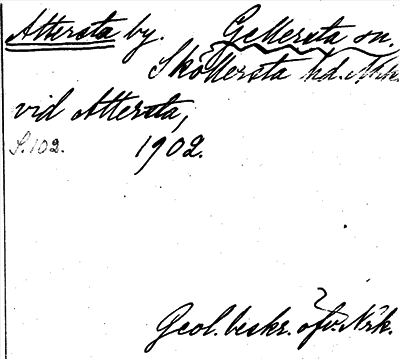 Attersta by. Gellersta sn.
Sköllersta hd. Nrk.
vid Attersta,
S. 102. 1902.
Geol. beskr. öfv. Nrk.